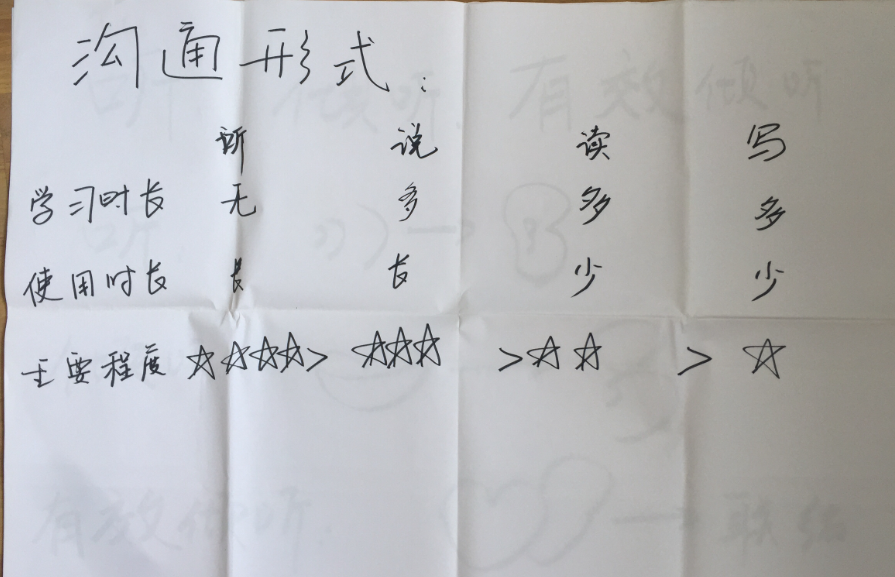 沟通形式:
听 说 读 写
学习时长 无 多 多 多
使用时长 长 长 少 少
主要程度 ☆☆☆☆> ☆☆☆ >☆☆ > ☆